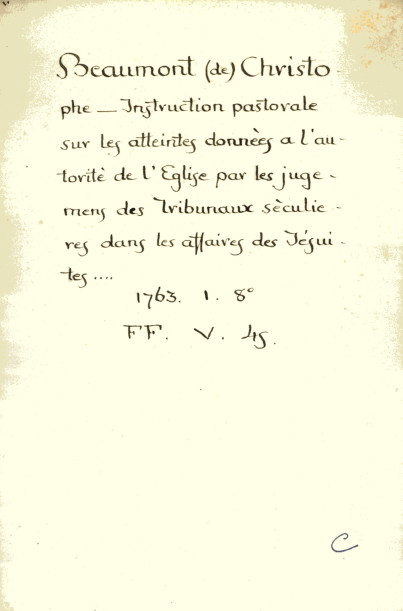 Beaumont (de) Christo-
phe — Instruction pastorale
sur les atteintes données a l'au-
torité de l'Eglise par les juge-
mens des Tribunaux séculie-
res dans les affaires des Jésui-
tes ....
1763. 1. 8°
FF. V. 45.
C